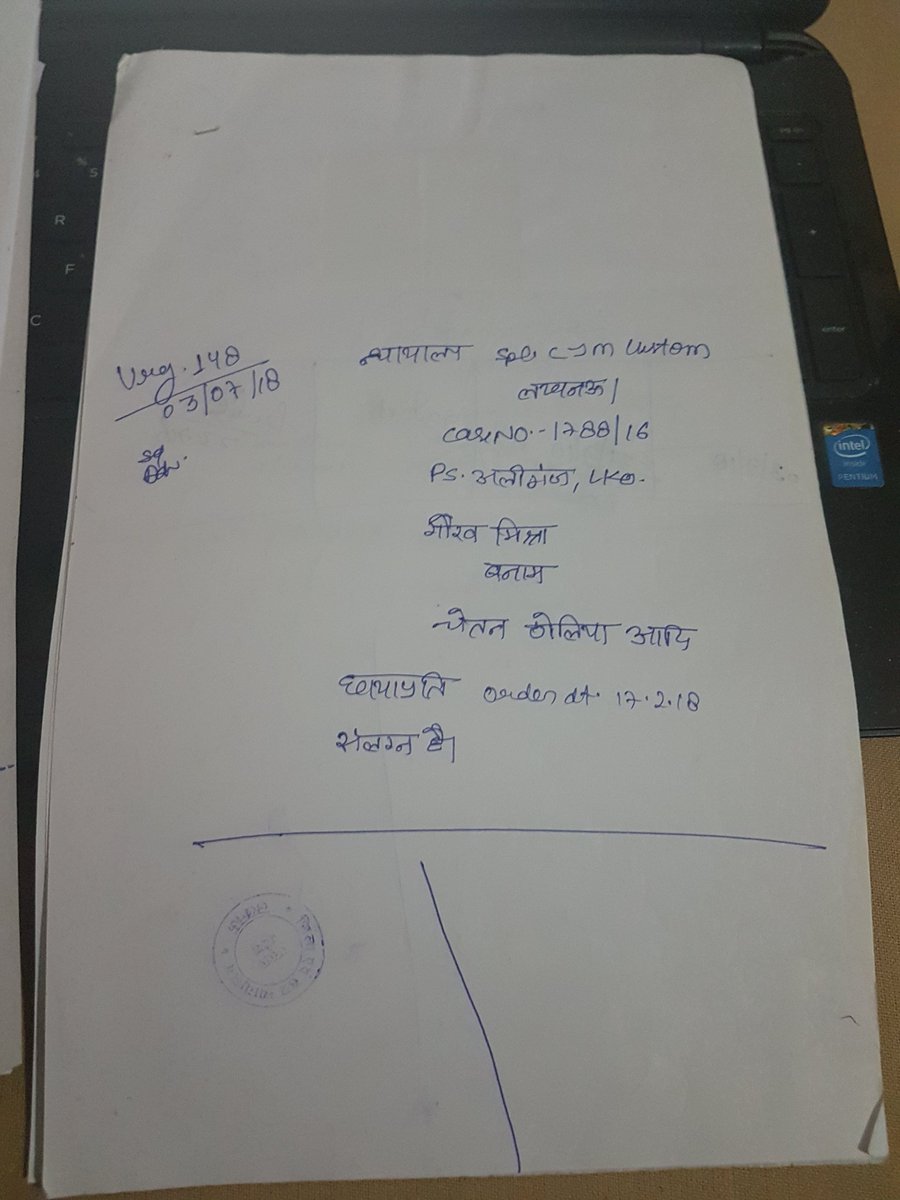 Urg. 148
03/07/18
न्यायालय Spl. CJM Custom
लखनऊ।
Case No.-1788/16
PS. अलीगंज, LKO.
गौरव मिश्रा
बनाम
चेतन ठोलिया आदि
छायाप्रति order dt. 17.2.18
संलग्न है।
intel
inside
PENTIUM
S
R
F
C
enter